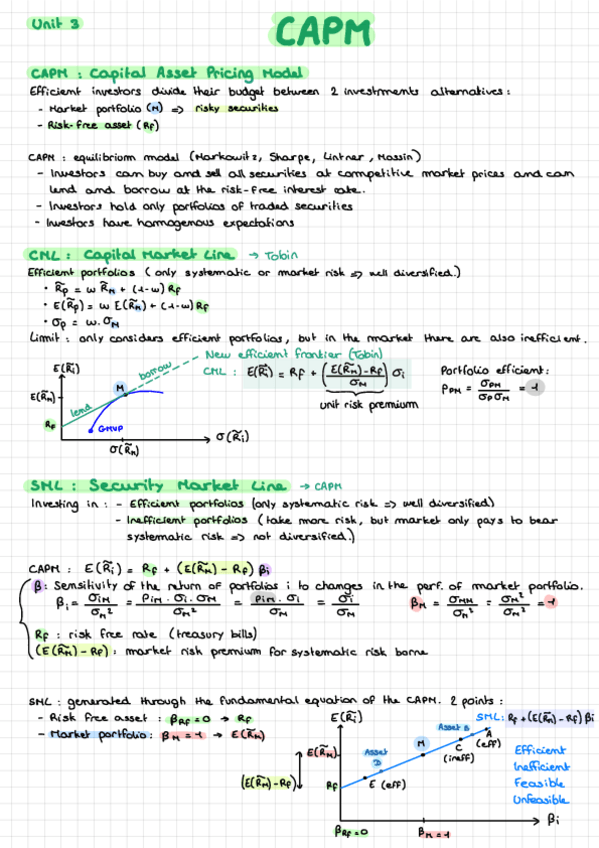 Unit 3
CAPM
CAPM : Capital Asset Pricing Model
Efficient investors divide their budget between 2 investments alternatives :
- Market portfolio (M) => risky securities
- Risk-free asset (Rf)
CAPM : equilibrium model (Markowitz, Sharpe, Lintner, Mossin)
- Investors can buy and sell all securities at competitive market prices and can
lend and borrow at the risk-free interest rate.
- Investors hold only portfolios of traded securities
- Investors have homogenous expectations
CML : Capital Market Line → Tobin
Efficient portfolios ( only systematic or market risk => well diversified.)
• R̃p = w R̃M + (1-w) Rf
• E(R̃p) = w E(R̃M) + (1-w) Rf
• σp = w. σM
Limit : only considers efficient portfolios, but in the market there are also inefficient.
New efficient frontier (Tobin)
CML : E(R̃i) = Rf + ((E(R̃M) - Rf) / σM) σi
unit risk premium
Portfolio efficient :
ρPM = σPM / σP σM = 1
E(R̃i)
borrow
M
E(R̃M)
lend
Rf
GMVP
σ(R̃M)
σ(R̃i)
SML : Security Market Line → CAPM
Investing in : - Efficient portfolios (only systematic risk => well diversified)
- Inefficient portfolios (take more risk, but market only pays to bear
systematic risk => not diversified.)
CAPM : E(R̃i) = Rf + (E(R̃M) - Rf) βi
β : Sensitivity of the return of portfolios i to changes in the perf. of market portfolio.
βi = σiM / σM² = ρiM . σi . σM / σM² = ρiM . σi / σM = σi / σM
βM = σMM / σM² = σM² / σM² = 1
Rf : risk free rate (treasury bills)
(E(R̃M) - Rf) : market risk premium for systematic risk borne
SML : generated through the fundamental equation of the CAPM. 2 points :
- Risk free asset : βRf = 0 → Rf
- Market portfolio : βM = 1 → E(R̃M)
E(R̃i)
SML: Rf + (E(R̃M) - Rf) βi
Asset B
A
(eff)
M
C
(ineff)
E(R̃M)
Asset
D
(E(R̃M) - Rf)
Rf
E (eff)
Efficient
Inefficient
Feasible
Unfeasible
βi
βRf = 0
βM = 1